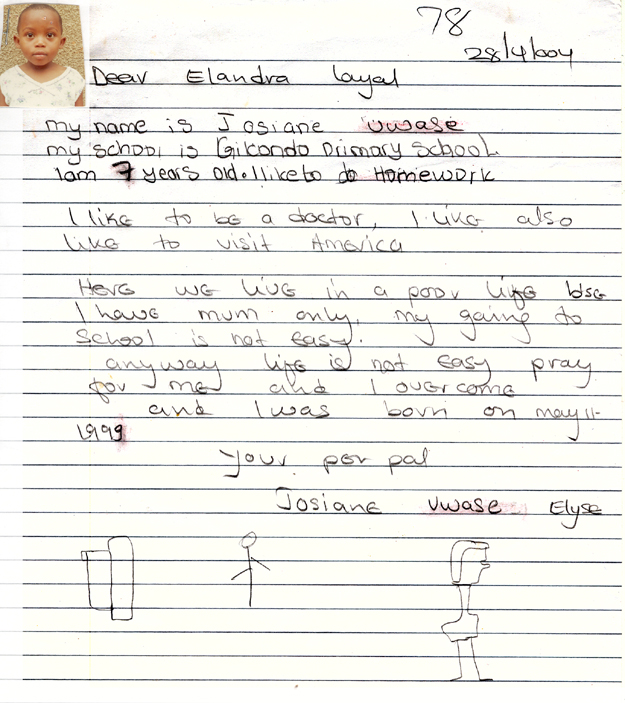 78
28/4/004
Dear Elandra Layal
my name is Josiane uwase
my school is Gikondo primary school.
Iam 7 years old. I like to do Homework
I like to be a doctor, I like also
like to visit America
Here we live in a poor life bse
I have mum only, my going to
school is not easy.
anyway life is not easy pray
for me and I overcome
and I was born on may 11-
1999
your per pal
Josiane Uwase Elyse